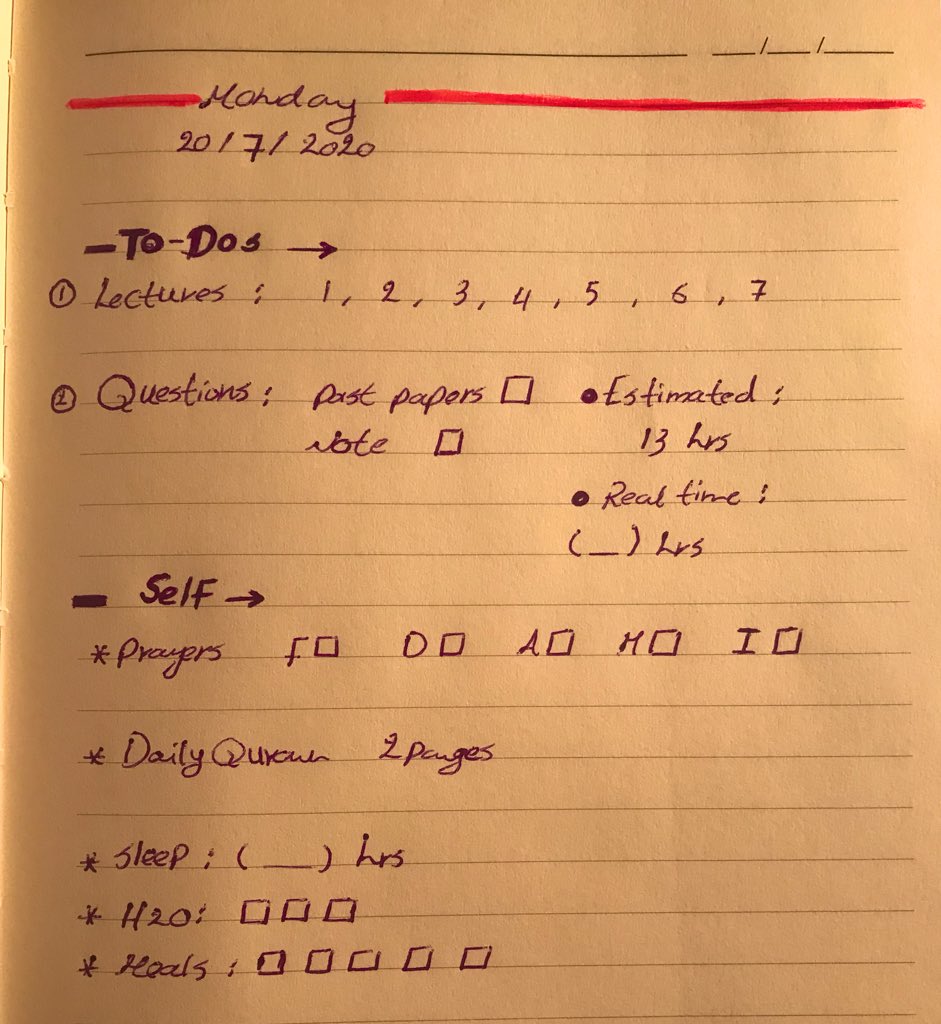 Monday
20/7/2020
- To-Dos →
① Lectures : 1, 2, 3, 4, 5, 6, 7
② Questions : past papers □ • Estimated :
Note □ 13 hrs
• Real time :
(_) hrs
- Self →
* Prayers F □ D □ A □ M □ I □
* Daily Quran 2 pages
* Sleep : (__) hrs
* H2O : □ □ □
* Meals : □ □ □ □ □